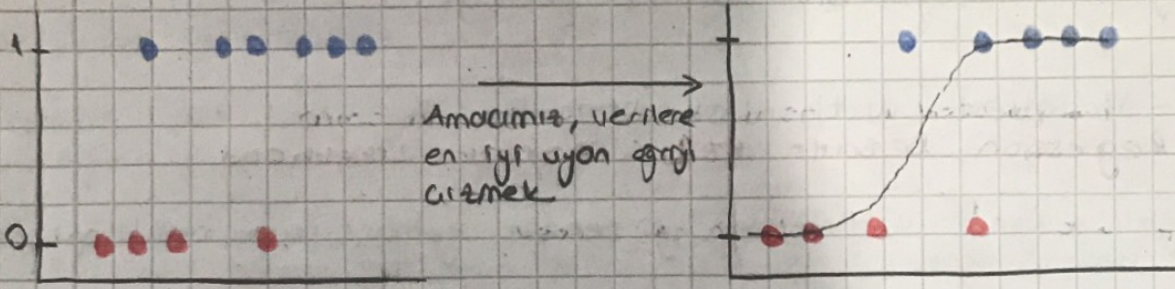 1
0
Amacımız, verilere
en iyi uyan eğriyi
çizmek